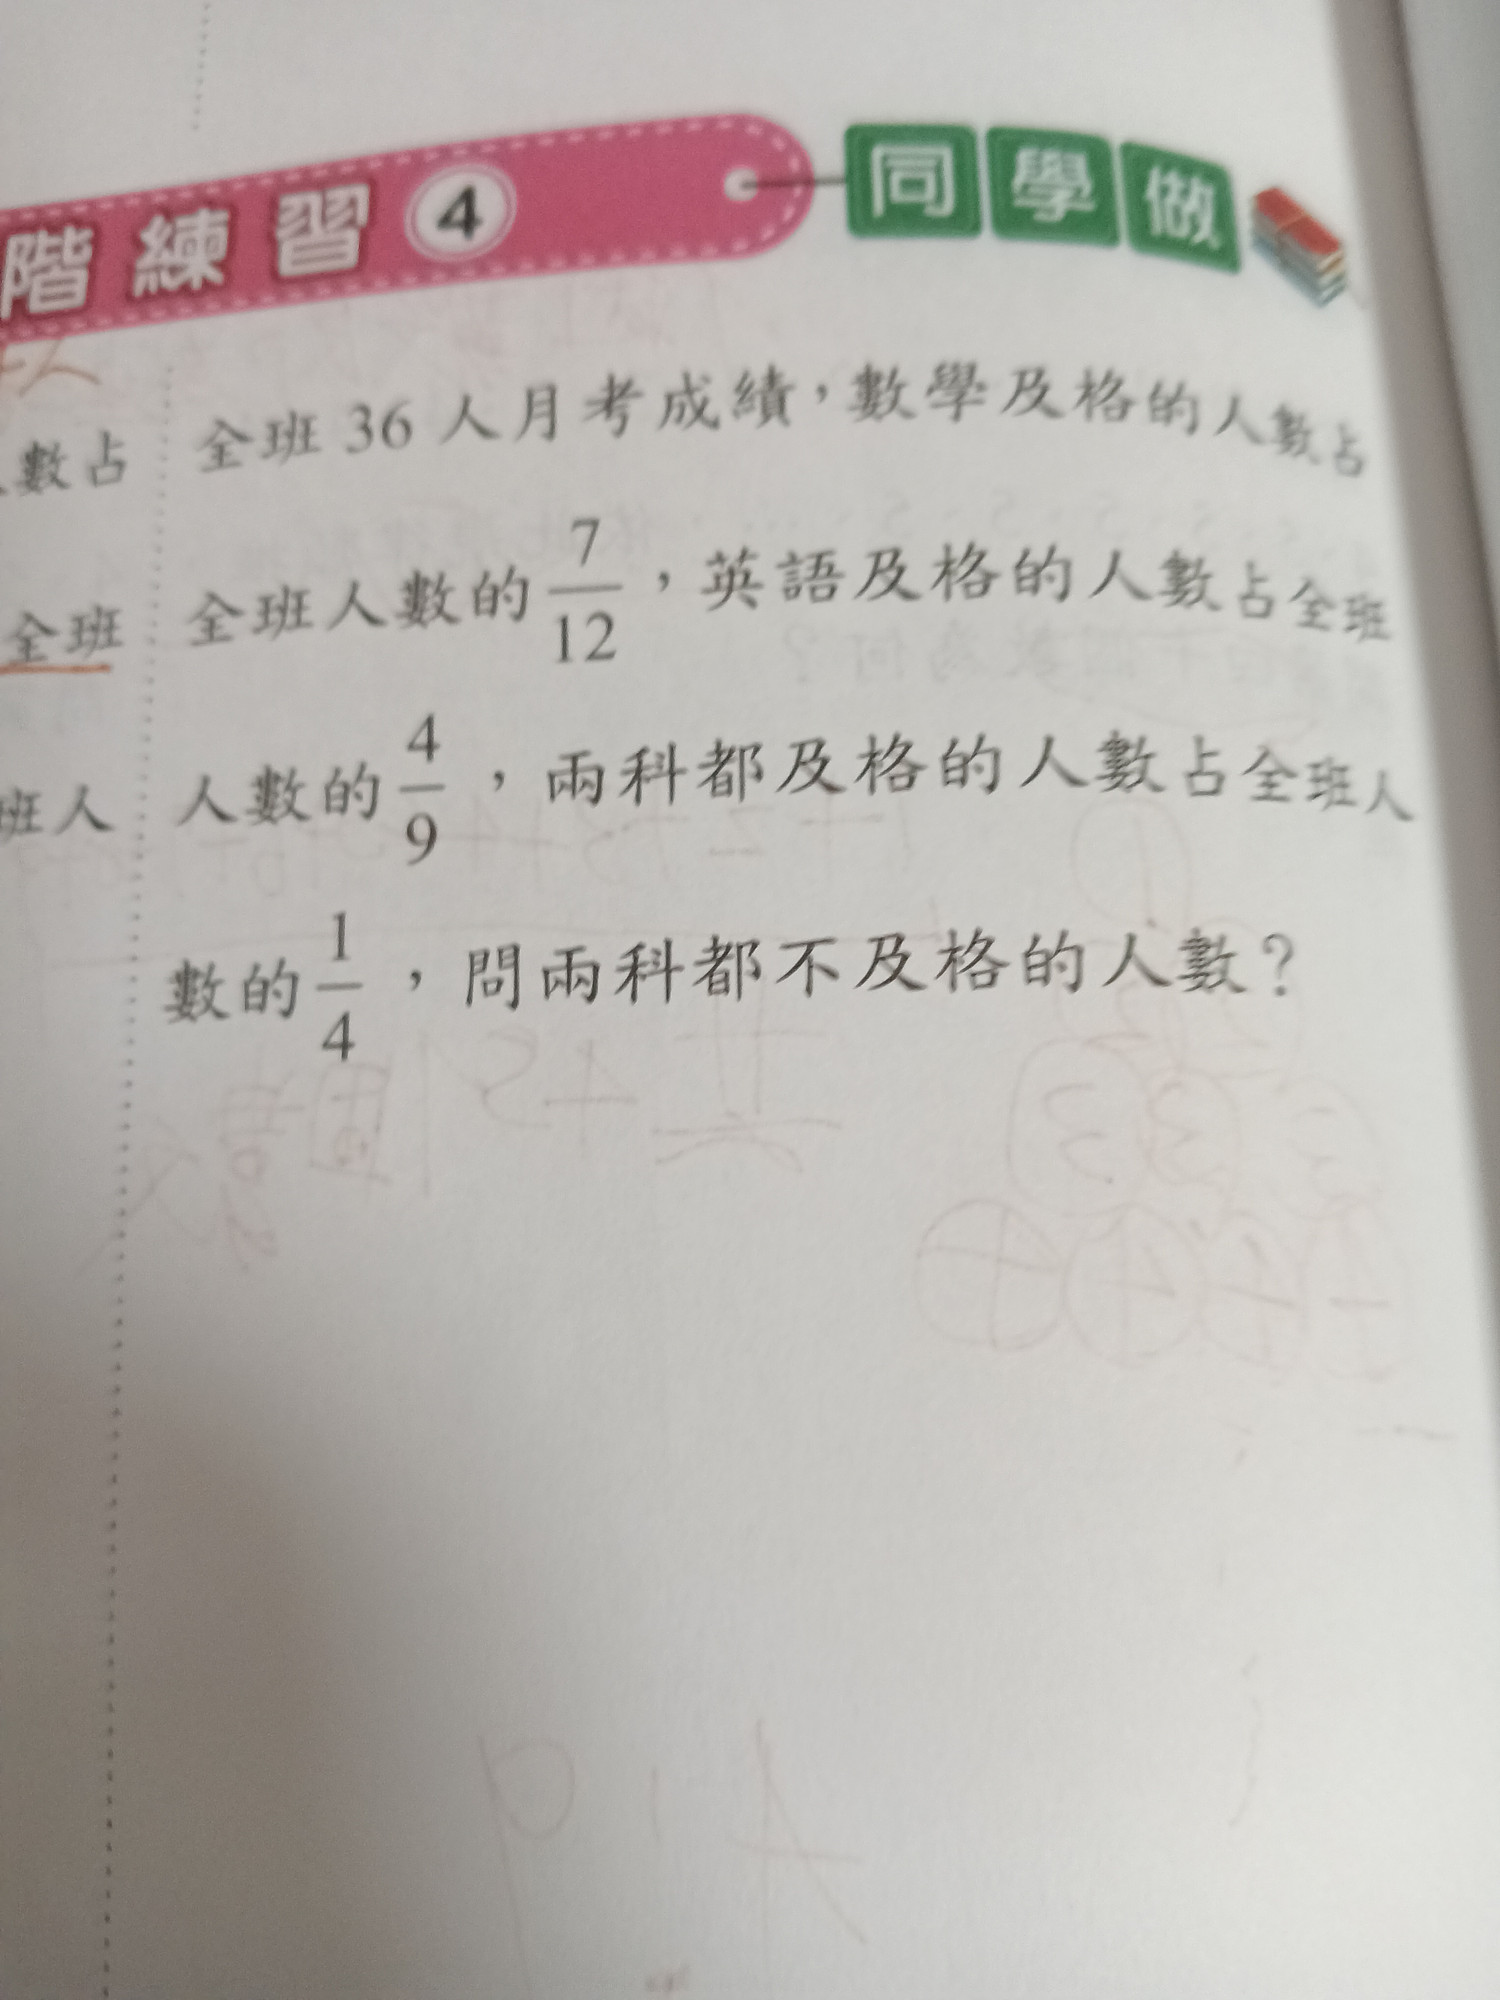 階練習 4 同學做
數占
全班
班人
全班 36 人月考成績，數學及格的人數占
全班人數的 7/12，英語及格的人數占全班
人數的 4/9，兩科都及格的人數占全班人
數的 1/4，問兩科都不及格的人數？